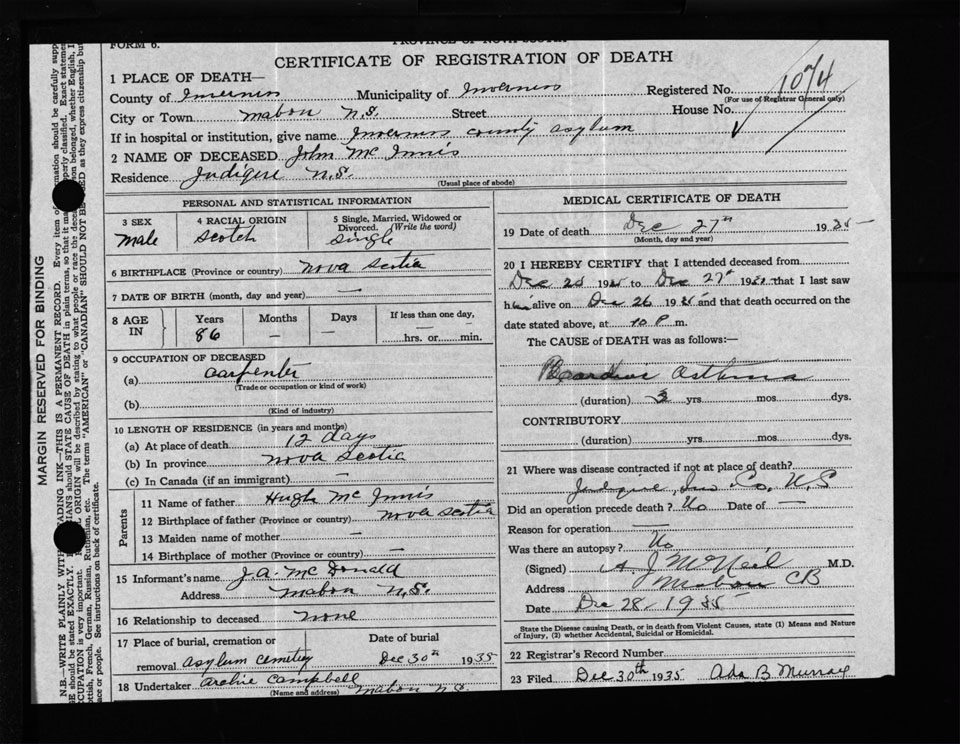 FORM 6.
PROVINCE OF NOVA SCOTIA
CERTIFICATE OF REGISTRATION OF DEATH
1 PLACE OF DEATH—
County of Inverness Municipality of Inverness Registered No. 1074
(For use of Registrar General only)
City or Town Mabou N.S. Street House No.
If in hospital or institution, give name Inverness county asylum
2 NAME OF DECEASED John Mc Innis
Residence Judique N.S.
(Usual place of abode)
PERSONAL AND STATISTICAL INFORMATION
3 SEX
male
4 RACIAL ORIGIN
Scotch
5 Single, Married, Widowed or Divorced. (Write the word)
Single
6 BIRTHPLACE (Province or country) Nova Scotia
7 DATE OF BIRTH (month, day and year) —
8 AGE IN
Years Months Days If less than one day,
86 — — hrs. or min.
9 OCCUPATION OF DECEASED
(a) Carpenter
(Trade or occupation or kind of work)
(b)
(Kind of industry)
10 LENGTH OF RESIDENCE (in years and months)
(a) At place of death 12 days
(b) In province Nova Scotia
(c) In Canada (if an immigrant) —
Parents
11 Name of father Hugh Mc Innis
12 Birthplace of father (Province or country) Nova Scotia
13 Maiden name of mother —
14 Birthplace of mother (Province or country) —
15 Informant's name J.A. McDonald
Address Mabou N.S.
16 Relationship to deceased none
17 Place of burial, cremation or Date of burial
removal asylum cemetery Dec 30th 1935
18 Undertaker Archie Campbell
(Name and address) Mabou N.S.
MEDICAL CERTIFICATE OF DEATH
19 Date of death Dec 27th 1935
(Month, day and year)
20 I HEREBY CERTIFY that I attended deceased from
Dec 1935 to Dec 27th 1935 that I last saw
him alive on Dec 26 1935 and that death occurred on the
date stated above, at 10 P m.
The CAUSE of DEATH was as follows:—
Cardiac Asthma
(duration) 3 yrs. mos. dys.
CONTRIBUTORY
(duration) yrs. mos. dys.
21 Where was disease contracted if not at place of death?
Judique, Inv. Co. N.S
Did an operation precede death? No Date of —
Reason for operation —
Was there an autopsy? No
(Signed) A. J McNeil M.D.
Address Mabou CB
Date Dec 28 - 1935
State the Disease causing Death, or in death from Violent Causes, state (1) Means and Nature of Injury, (2) whether Accidental, Suicidal or Homicidal.
22 Registrar's Record Number
23 Filed Dec 30th 1935 Ada B Murray
MARGIN RESERVED FOR BINDING
N.B.—WRITE PLAINLY WITH UNFADING INK—THIS IS A PERMANENT RECORD. Every item of information should be carefully supp
should be stated EXACTLY. should STATE CAUSE OF DEATH in plain terms, so that it may properly classified. Exact statement
OCCUPATION is very important. ORIGIN will be described by stating to what people or race the deceased belonged, whether English, I
French, German, Russian, Ruthenian, etc. The terms "AMERICAN" or "CANADIAN" SHOULD NOT BE as they express citizenship but
race or people. See instructions on back of certificate.